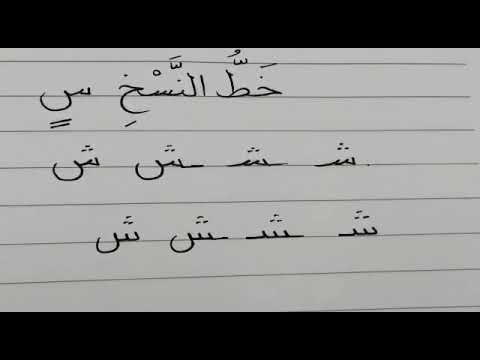 خَطُّ النَّسْخِ س
شـ ـشـ ـش ش
شـ ـشـ ـش ش